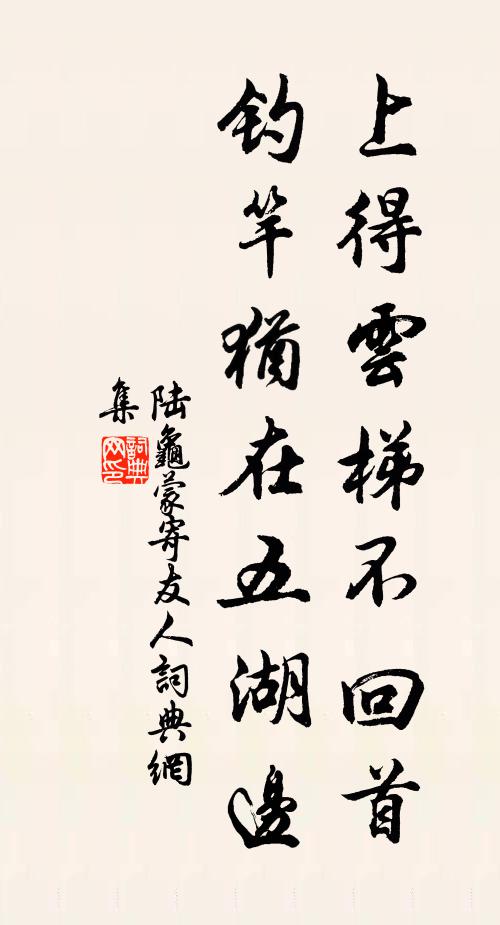 上得雲梯不回首
釣竿猶在五湖邊
陆龜蒙寄友人詞典網
集
詞典
网印